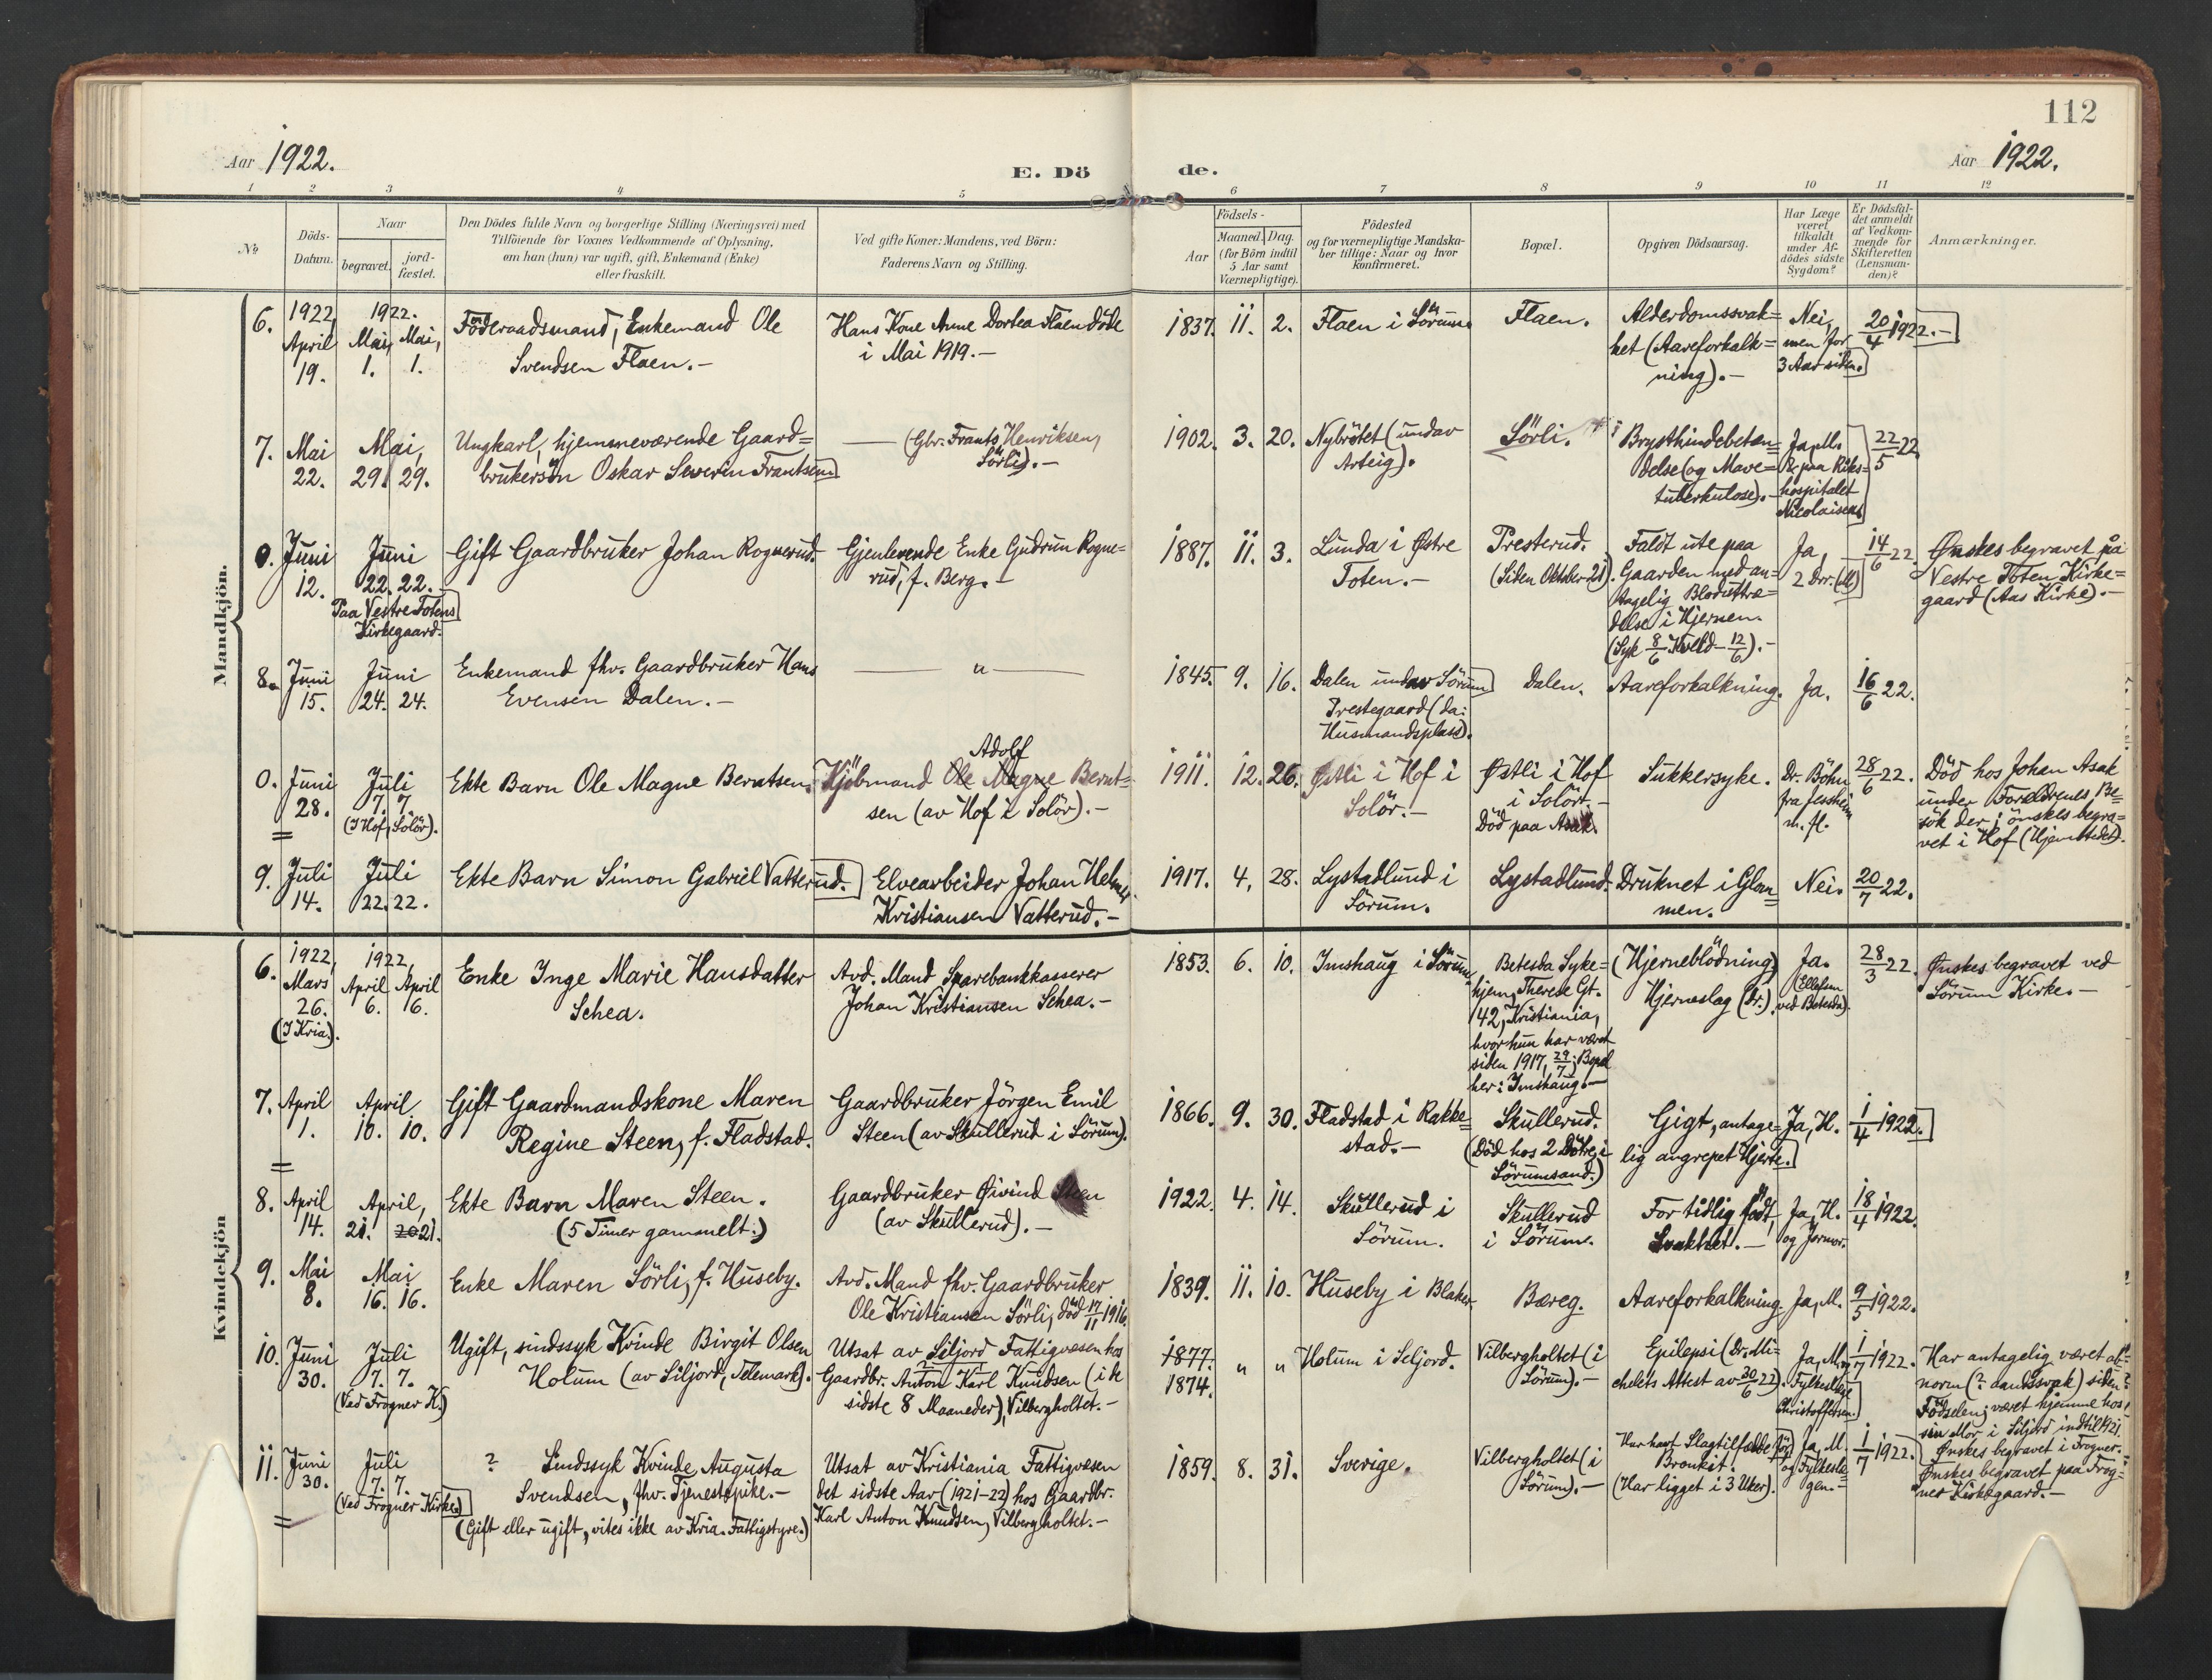 112
Aar 1922.
E. Dö
de.
Aar 1922.
1 2 3 4 5 6 7 8 9 10 11 12
No
Döds-
Datum.
Naar
begravet.
jord-
fæstet.
Den Dödes fulde Navn og borgerlige Stilling (Næringsvei) med
Tilföiende for Voxnes Vedkommende af Oplysning,
om han (hun) var ugift, gift, Enkemand (Enke)
eller fraskilt.
Ved gifte Koner: Mandens, ved Börn:
Faderens Navn og Stilling.
Födsels-
Aar
Maaned. Dag.
(for Börn indtil
5 Aar samt
Værnepligtige).
Födested
og for værnepligtige Mandska-
ber tillige: Naar og hvor
konfirmeret.
Bopæl.
Opgiven Dödsaarsag.
Har Læge
været
tilkaldt
under Af-
dödes sidste
Sygdom?
Er Dödsfal-
det anmeldt
af Vedkom-
mende for
Skifteretten
(Lensman-
den)?
Anmærkninger.
Mandkjön.
6.
1922
April
19.
1922.
Mai, Mai,
1. 1.
Föderaadsmand, Enkemand Ole
Svendsen Flaen.-
Hans Kone Anne Dortea Flaen döde
i Mai 1919.-
1837. 11. 2.
Flaen i Sörum.
Flaen.
Alderdomssvak=
het (Aareforkalk=
ning).-
Nei,
men for
3 Aar siden.
20/4 1922.-
7.
Mai
22.
Mai,
29. 29.
Ungkarl, hjemmeværende Gaard=
brukersön Oskar Severin Frantsen
(Gbr. Frants Henriksen,
Sörli).-
1902. 3. 20.
Nybrötet (undav
Arteig).
Sörli.
Brysthindebeten=
delse (og Mave=
tuberkulose).-
Ja, M.
& paa Riks=
hospitalet
Nicolaisens
22/5 22
0.
Juni
12.
Juni
22. 22.
Paa Vestre Totens
Kirkegaard.
Gift Gaardbruker Johan Rognerud.
Gjenlevende Enke Gudrun Rogne=
rud, f. Berg.-
1887. 11. 3.
Lunda i Østre
Toten.-
Presterud.
(Siden Oktober 21).
Faldt ute paa
Gaarden med an=
tagelig Bloduttræ=
delse i Hjernen.
(Syk 8/6 Kveld - 12/6).-
Ja,
2 Drr. (M)
14/6 22
Ønskes begravet på
Vestre Toten Kirke=
gaard (Aas Kirke).-
8.
Juni
15.
Juni
24. 24.
Enkemand fhv. Gaardbruker Hans
Evensen Dalen.-
— " —
1845. 9. 16.
Dalen undav Sörum
Prestegaard (da:
Husmandsplass).
Dalen.
Aareforkalkning.
Ja.
16/6 22.
0.
Juni
28.
Juli
7. 7.
(I Hof, Solör).
Ekte Barn Ole Magne Berntsen.
Adolf
Kjöbmand Ole Magne Bernt=
sen (av Hof i Solör).-
1911. 12. 26.
Østli i Hof i
Solör.-
Østli i Hof
i Solör.-
Död paa Asak.
Sukkersyke.
Dr. Böhn
fra Jessheim
m. fl.
28/6 22.
Död hos Johan Asak
under Forældrenes Be=
sök der; önskes begra=
vet i Hof (Hjemstedet).
9.
Juli
14.
Juli
22. 22.
Ekte Barn Simon Gabriel Vatterud.
Elvearbeider Johan Helmer
Kristiansen Vatterud.-
1917. 4. 28.
Lystadlund i
Sörum.
Lystadlund.
Druknet i Glom=
men.
Nei.
20/7 22.
Kvindekjön
6.
1922
Mars
26.
(I Kria).
1922,
April April
6. 16.
Enke Inge Marie Hansdatter
Schea.
Avd. Mand Sparebankkasserer
Johan Kristiansen Schea.-
1853. 6. 10.
Imshaug i Sörum
Betesda Syke=
hjem, Therese Gt.
42, Kristiania,
hvor hun har været
siden 1917, 29/7; Bopæl
her: Imshaug.-
(Hjerneblödning)
Hjerneslag (Dr.).
Ja.
(Ellefsen
ved Betesda).
28/3 22.
Ønskes begravet ved
Sörum Kirke.-
7.
April
1.
April
10. 10.
Gift Gaardmandskone Maren
Regine Steen, f. Fladstad.
Gaardbruker Jörgen Emil
Steen (av Skullerud i Sörum).
1866. 9. 30.
Fladstad i Rakke=
stad.-
Skullerud.
(Död hos 2 Dötre, i
Sörumsand.)
Gigt, antage=
lig angrepet Hjerte.
Ja, H.
1/4 1922.
8.
April
14.
April,
21. 20 21.
Ekte Barn Maren Steen.
(5 Timer gammelt.)
Gaardbruker Øivind Steen
(av Skullerud).-
1922. 4. 14.
Skullerud i
Sörum.
Skullerud
i Sörum.
For tidlig födt,
Svakhet.-
Ja, H.
og Jormor.
18/4 1922.
9.
Mai
8.
Mai
16. 16.
Enke Maren Sörli, f. Huseby.
Avd. Mand fhv. Gaardbruker
Ole Kristiansen Sörli, död 17/11 1916.
1839. 11. 10.
Huseby i Blaker.
Bæreg.
Aareforkalkning.
Ja, M.
9/5 1922.
10.
Juni
30.
Juli
7. 7.
(Ved Frogner K.)
Ugift, sindssyk Kvinde Birgit Olsen
Holum (av Siljord, Telemark).
Utsat av Siljord Fattigvæsen hos
Gaardbr. Anton Karl Knudsen (i de
sidste 8 Maaneder), Vilbergholtet.-
1877.
1874.
" "
Holum i Seljord.
Vilbergholtet (i
Sörum).-
Epilepsi (Dr. Mi=
chelets Attest av 30/6 22).
Ja, M. og
Fylkeslæge
Christoffersen.
1/7 1922.
Har antagelig været ab=
norm (? aandssvak) siden
Födselen; været hjemme hos
sin Mor i Siljord indtil 1921.
Ønskes begravet i Frogner.
11.
Juni
30.
Juli
7. 7.
(Ved Frogner Kirke)
? Sindssyk Kvinde, Augusta
Svendsen, fhv. Tjenestepike.-
(Gift eller ugift, vites ikke av Kria. Fattigstyre.)
Utsat av Kristiania Fattigvæsen
det sidste Aar (1921-22) hos Gaardbr.
Karl Anton Knudsen, Vilbergholtet.-
1859. 8. 31.
Sverige.
Vilbergholtet (i
Sörum).-
Har havt Slagtilfælde för
Bronkit.
(Har ligget i 3 Uker).
Ja, M.
og Fylkeslæ=
gen.-
1/7 1922.
Ønskes begravet paa Frog=
ner Kirkegaard.-